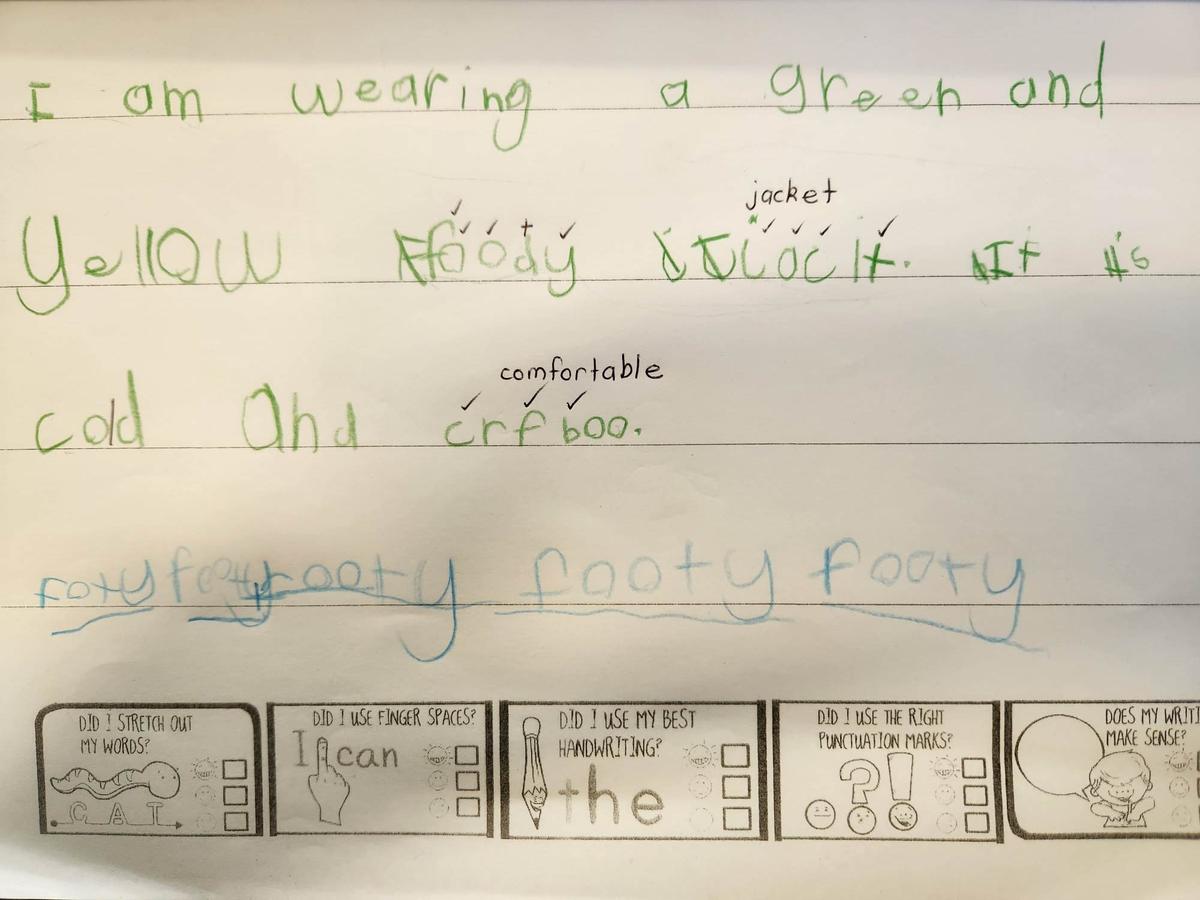 I am wearing a green and
jacket
yellow foody jacit. It is
comfortable
cold and crfboo.
foty footy footy footy footy
DID I STRETCH OUT MY WORDS?
CAT
DID I USE FINGER SPACES?
I can
DID I USE MY BEST HANDWRITING?
the
DID I USE THE RIGHT PUNCTUATION MARKS?
?!
DOES MY WRITI
MAKE SENSE?